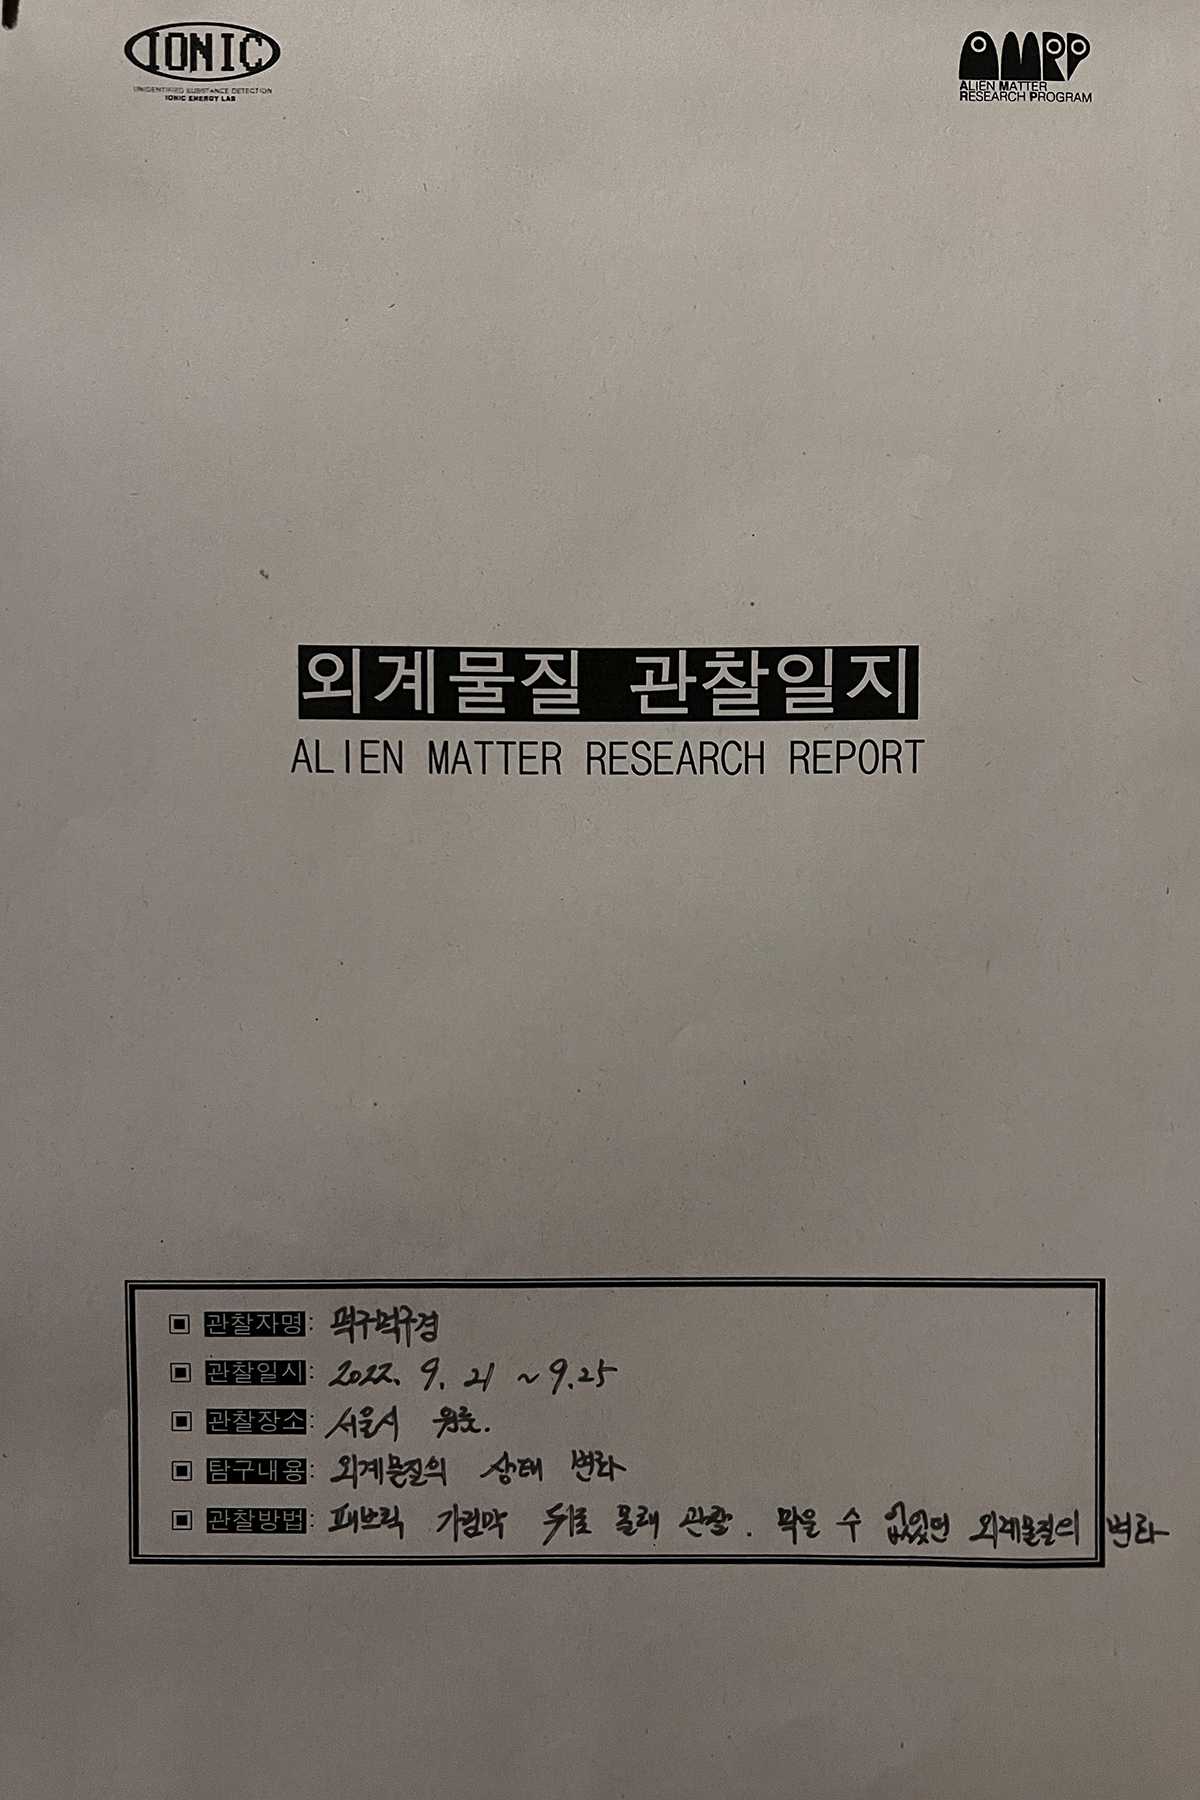 IONIC
UNIDENTIFIED SUBSTANCE DETECTION
IONIC ENERGY LAB
AMRP
ALIEN MATTER
RESEARCH PROGRAM
외계물질 관찰일지
ALIEN MATTER RESEARCH REPORT
관찰자명:
관찰일시: 2022. 9. 21 ~ 9.25
관찰장소: 서울시
탐구내용: 외계물질의 상태 변화
관찰방법: 패브릭 가림막 뒤로 몰래 관찰. 막을 수 없었던 외계물질의 변화